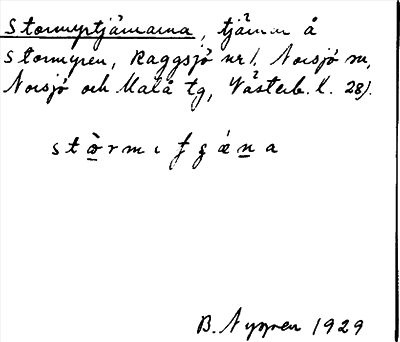 Stormyrtjärnarna, tjärnar å
Stormyren, Raggsjö nr 1, Norsjö sn,
Norsjö och Malå tg, Västerb. l. 28).
B. Nygren 1929